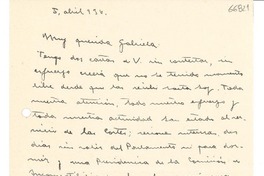 5, abril 934.
Muy querida Gabriela:
Tengo dos cartas de V. sin contestar, sin
esfuerzo creerá que no he tenido momento
libre desde que las recibí hasta hoy. Toda
nuestra atención, todo nuestro esfuerzo y
toda nuestra actividad ha estado al ser-
vicio de las Cortes; semanas internas, dos
días sin salir del Parlamento ni para dor-
mir y una Presidencia de la Comisión de